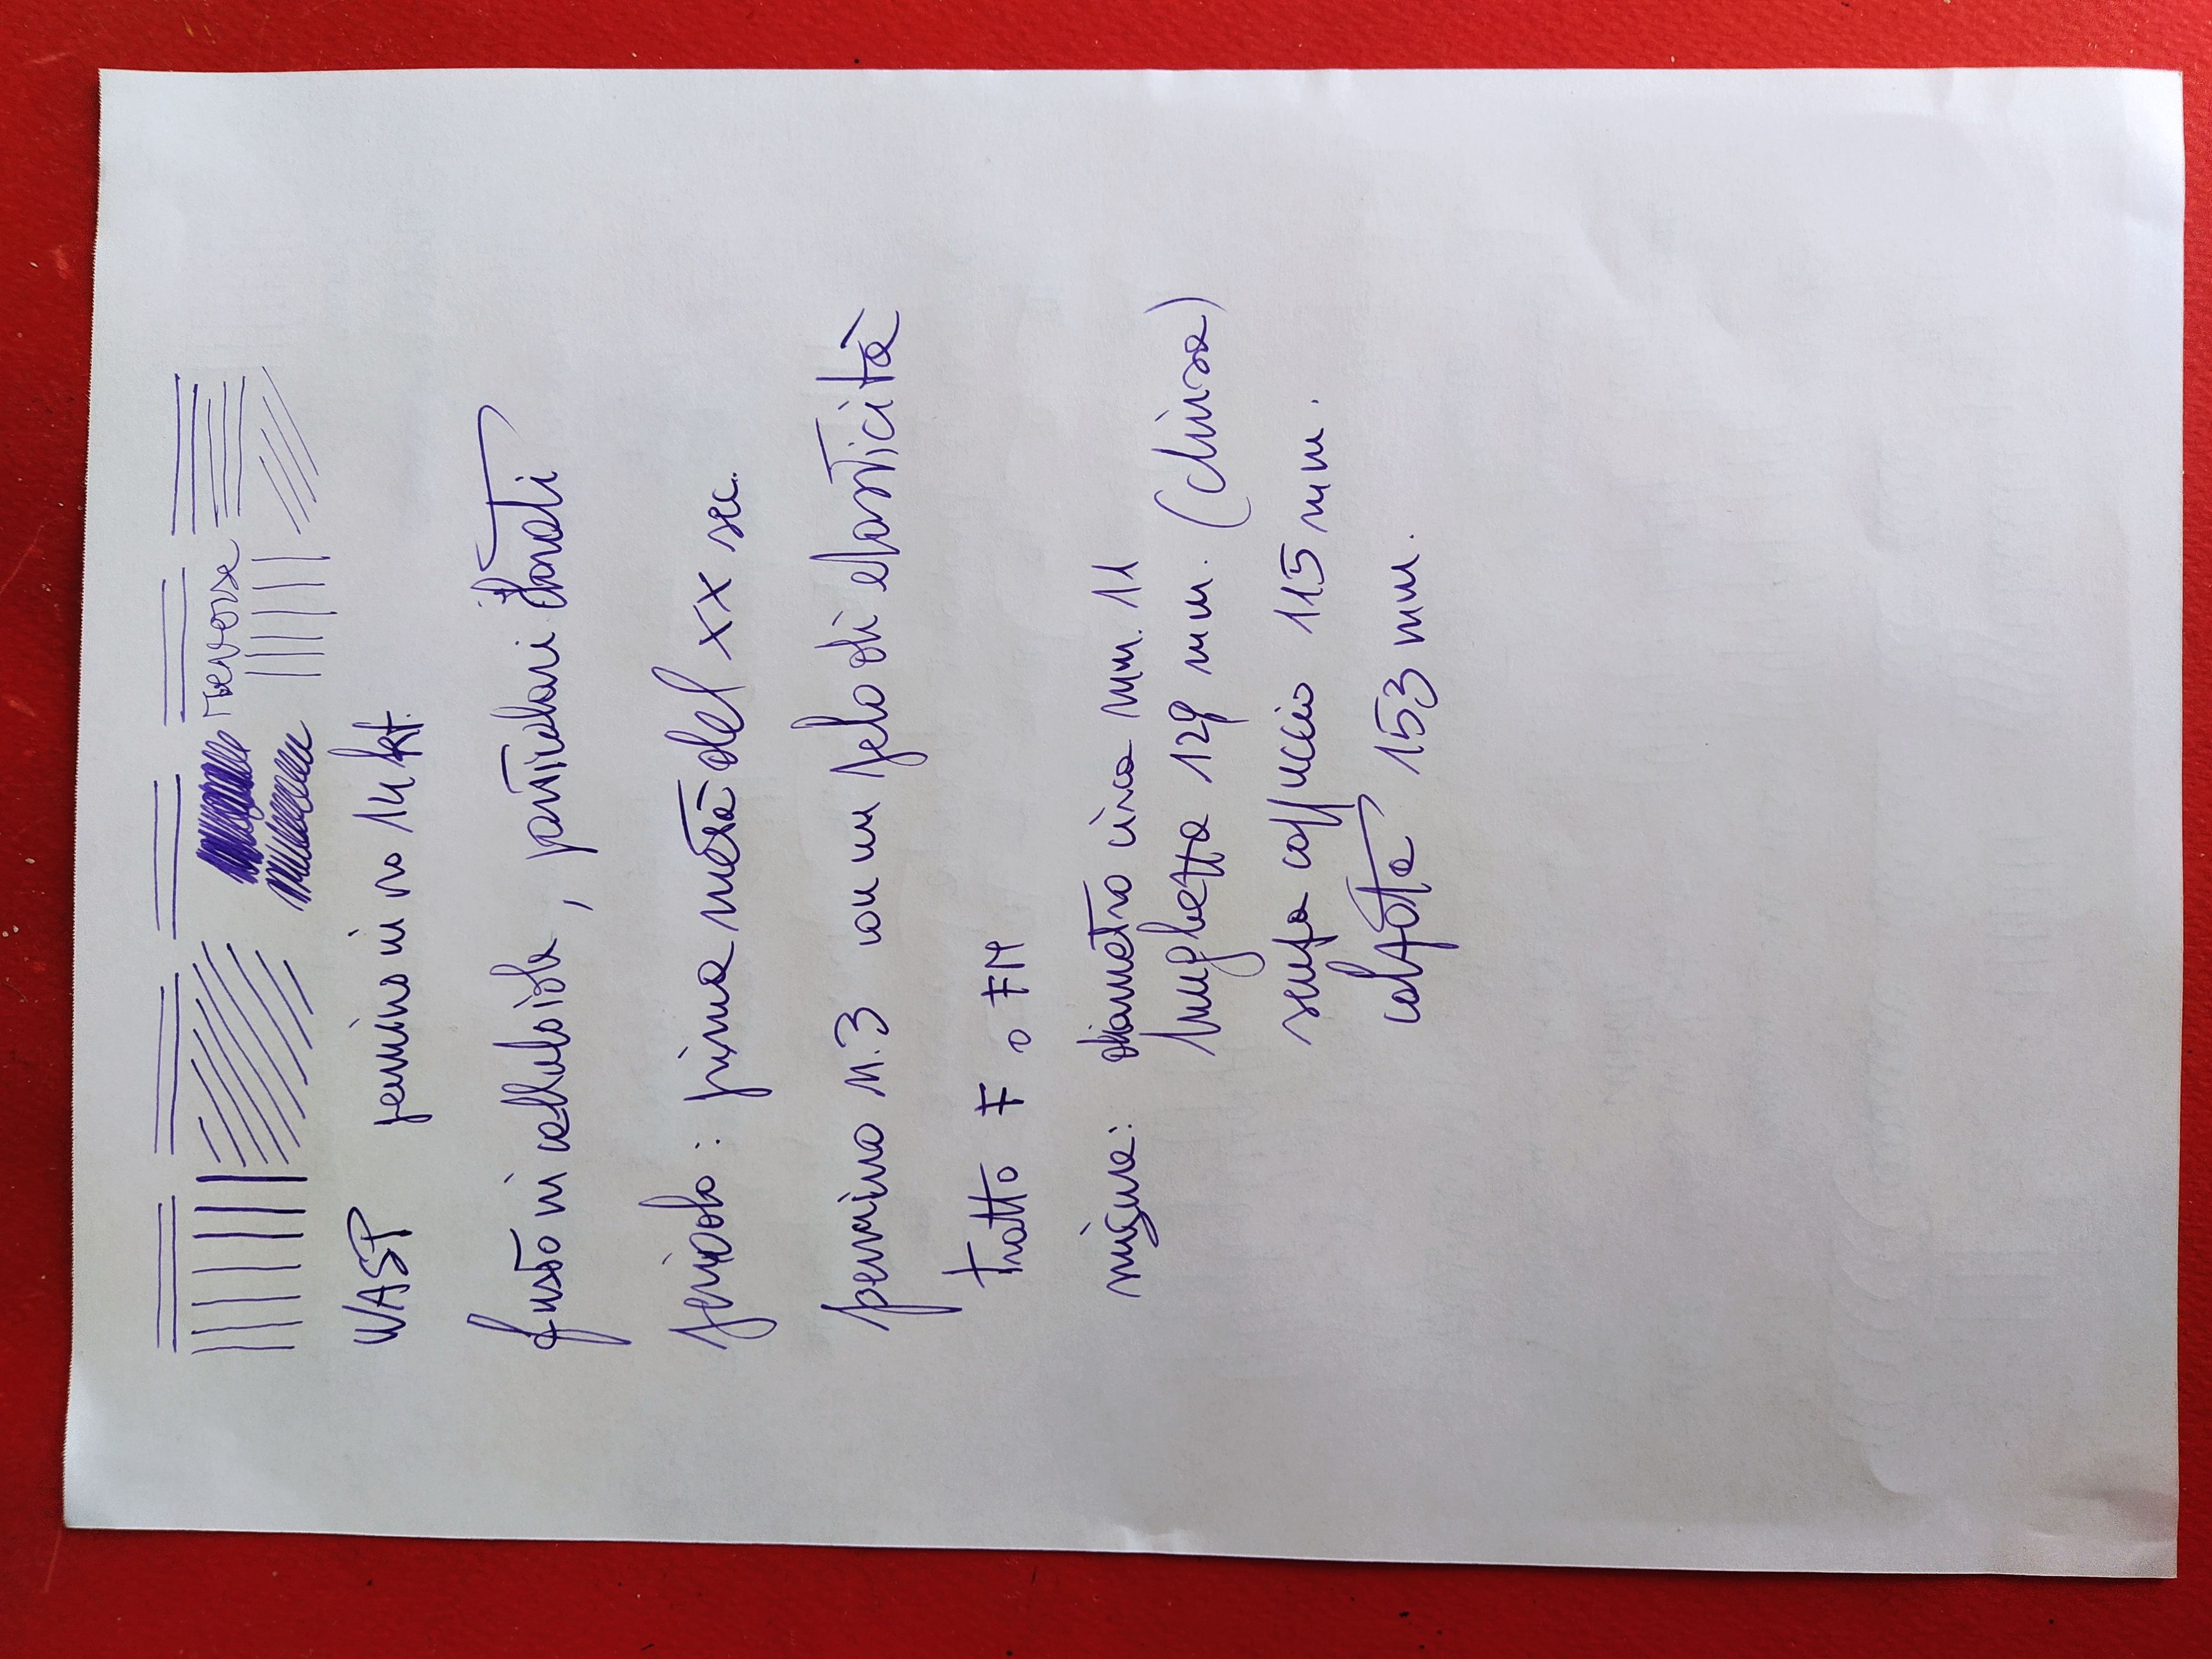 reverse
WASP pennino in oro 14 kt.
fusto in celluloide, particolari dorati
periodo: prima metà del XX sec.
pennino n.3 con un pelo di elasticità
tratto F o FM
misure: diametro circa mm. 11
lunghetta 129 mm. (chiusa)
senza cappuccio 115 mm.
calzata 153 mm.